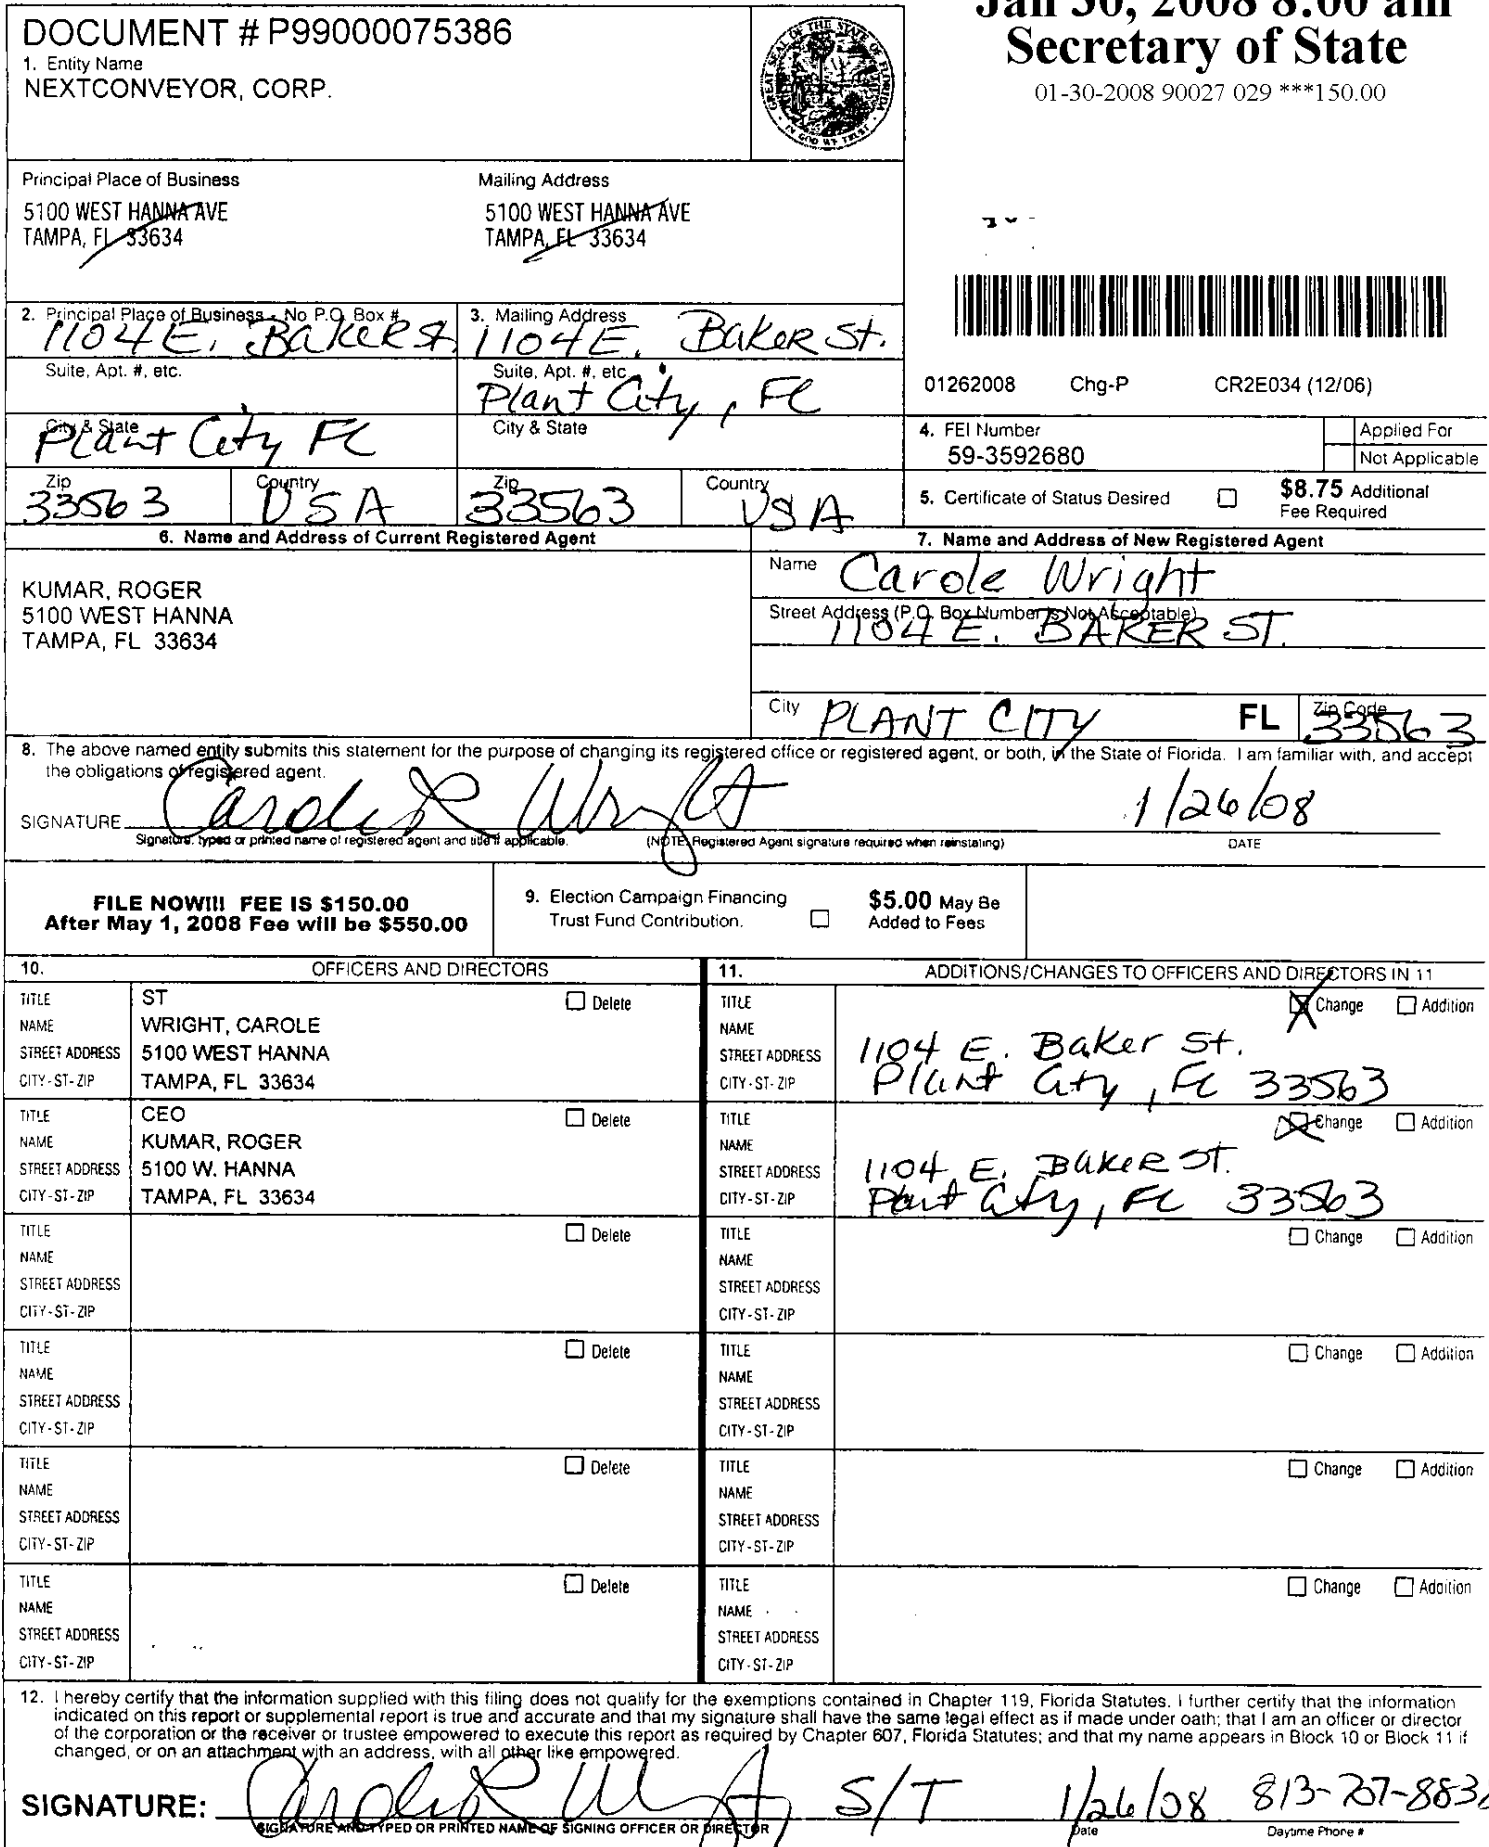 Jan 30, 2008 8:00 am
Secretary of State
01-30-2008 90027 029 ***150.00
DOCUMENT # P99000075386
1. Entity Name
NEXTCONVEYOR, CORP.
GREAT SEAL OF THE STATE OF FLORIDA
IN GOD WE TRUST
Principal Place of Business
5100 WEST HANNA AVE
TAMPA, FL 33634
Mailing Address
5100 WEST HANNA AVE
TAMPA, FL 33634
2. Principal Place of Business - No P.O. Box #
1104 E. Baker St.
Suite, Apt. #, etc.
City & State
Plant City FL
Zip
33563
Country
USA
3. Mailing Address
1104 E. Baker St.
Suite, Apt. #, etc.
Plant City, FL
City & State
Zip
33563
Country
USA
01262008 Chg-P CR2E034 (12/06)
4. FEI Number
59-3592680
Applied For
Not Applicable
5. Certificate of Status Desired
$8.75 Additional
Fee Required
6. Name and Address of Current Registered Agent
KUMAR, ROGER
5100 WEST HANNA
TAMPA, FL 33634
7. Name and Address of New Registered Agent
Name
Carole Wright
Street Address (P.O. Box Number is Not Acceptable)
1104 E. BAKER ST.
City PLANT CITY FL Zip Code 33563
8. The above named entity submits this statement for the purpose of changing its registered office or registered agent, or both, in the State of Florida. I am familiar with, and accept
the obligations of registered agent.
SIGNATURE Carole R Wright 1/26/08
Signature, typed or printed name of registered agent and title if applicable. (NOTE: Registered Agent signature required when reinstating) DATE
FILE NOW!!! FEE IS $150.00
After May 1, 2008 Fee will be $550.00
9. Election Campaign Financing
Trust Fund Contribution.
$5.00 May Be
Added to Fees
10. OFFICERS AND DIRECTORS
TITLE ST Delete
NAME WRIGHT, CAROLE
STREET ADDRESS 5100 WEST HANNA
CITY-ST-ZIP TAMPA, FL 33634
TITLE CEO Delete
NAME KUMAR, ROGER
STREET ADDRESS 5100 W. HANNA
CITY-ST-ZIP TAMPA, FL 33634
TITLE Delete
NAME
STREET ADDRESS
CITY-ST-ZIP
TITLE Delete
NAME
STREET ADDRESS
CITY-ST-ZIP
TITLE Delete
NAME
STREET ADDRESS
CITY-ST-ZIP
TITLE Delete
NAME
STREET ADDRESS
CITY-ST-ZIP
11. ADDITIONS/CHANGES TO OFFICERS AND DIRECTORS IN 11
TITLE Change Addition
NAME
STREET ADDRESS 1104 E. Baker St.
CITY-ST-ZIP Plant City, FL 33563
TITLE Change Addition
NAME
STREET ADDRESS 1104 E. Baker St.
CITY-ST-ZIP Plant City, FL 33563
TITLE Change Addition
NAME
STREET ADDRESS
CITY-ST-ZIP
TITLE Change Addition
NAME
STREET ADDRESS
CITY-ST-ZIP
TITLE Change Addition
NAME
STREET ADDRESS
CITY-ST-ZIP
TITLE Change Addition
NAME
STREET ADDRESS
CITY-ST-ZIP
12. I hereby certify that the information supplied with this filing does not qualify for the exemptions contained in Chapter 119, Florida Statutes. I further certify that the information
indicated on this report or supplemental report is true and accurate and that my signature shall have the same legal effect as if made under oath; that I am an officer or director
of the corporation or the receiver or trustee empowered to execute this report as required by Chapter 607, Florida Statutes; and that my name appears in Block 10 or Block 11 if
changed, or on an attachment with an address, with all other like empowered.
SIGNATURE: Carole R Wright S/T 1/26/08
SIGNATURE AND TYPED OR PRINTED NAME OF SIGNING OFFICER OR DIRECTOR Date Daytime Phone #